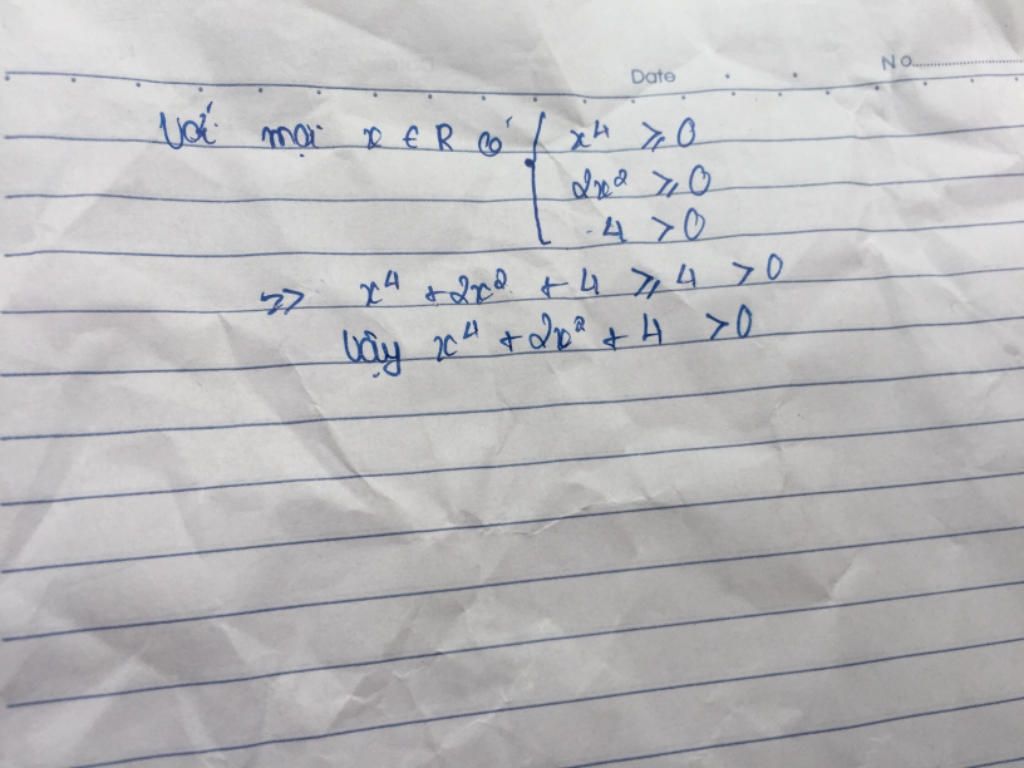 Date No.
Với mọi x ∈ R có { x⁴ ⩾ 0
2x² ⩾ 0
4 > 0
=> x⁴ + 2x² + 4 ⩾ 4 > 0
Vậy x⁴ + 2x² + 4 > 0